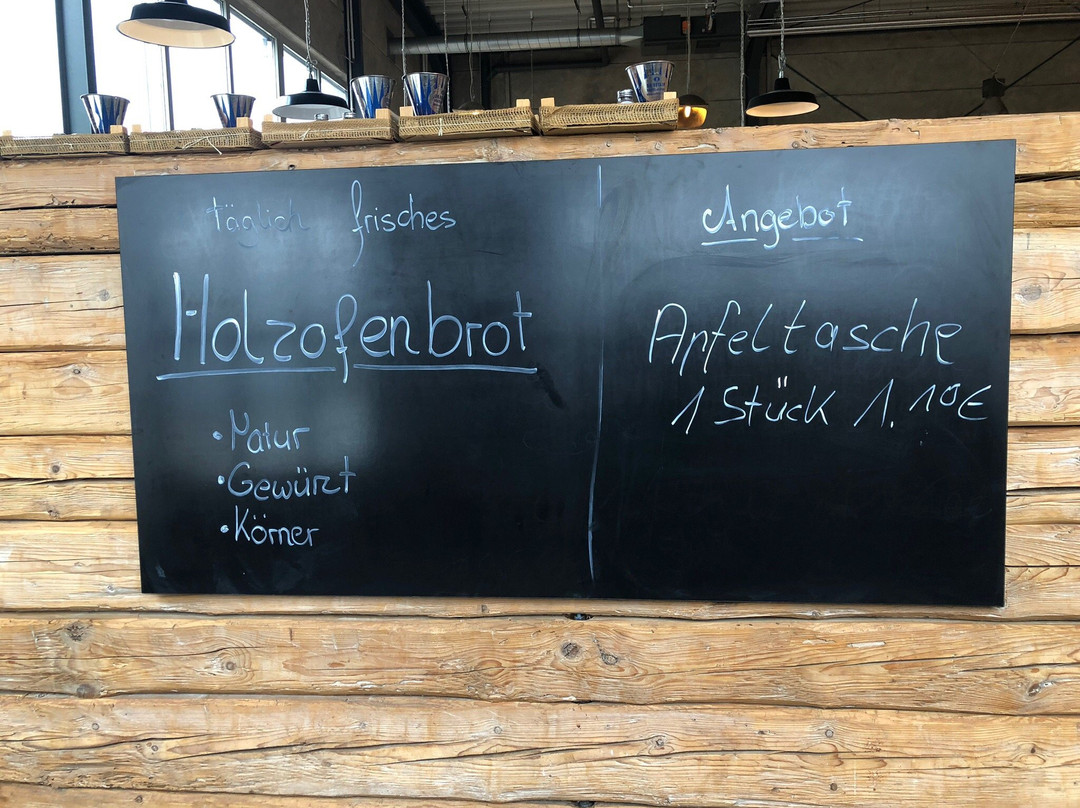 täglich frisches
Holzofenbrot
• Natur
• Gewürzt
• Körner
Angebot
Apfeltasche
1 Stück 1.10€